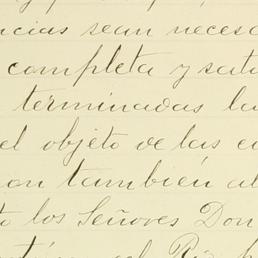 ncias sean neces
completa y sat
terminadas la
el objeto de las e
on también al
to los Señores Don